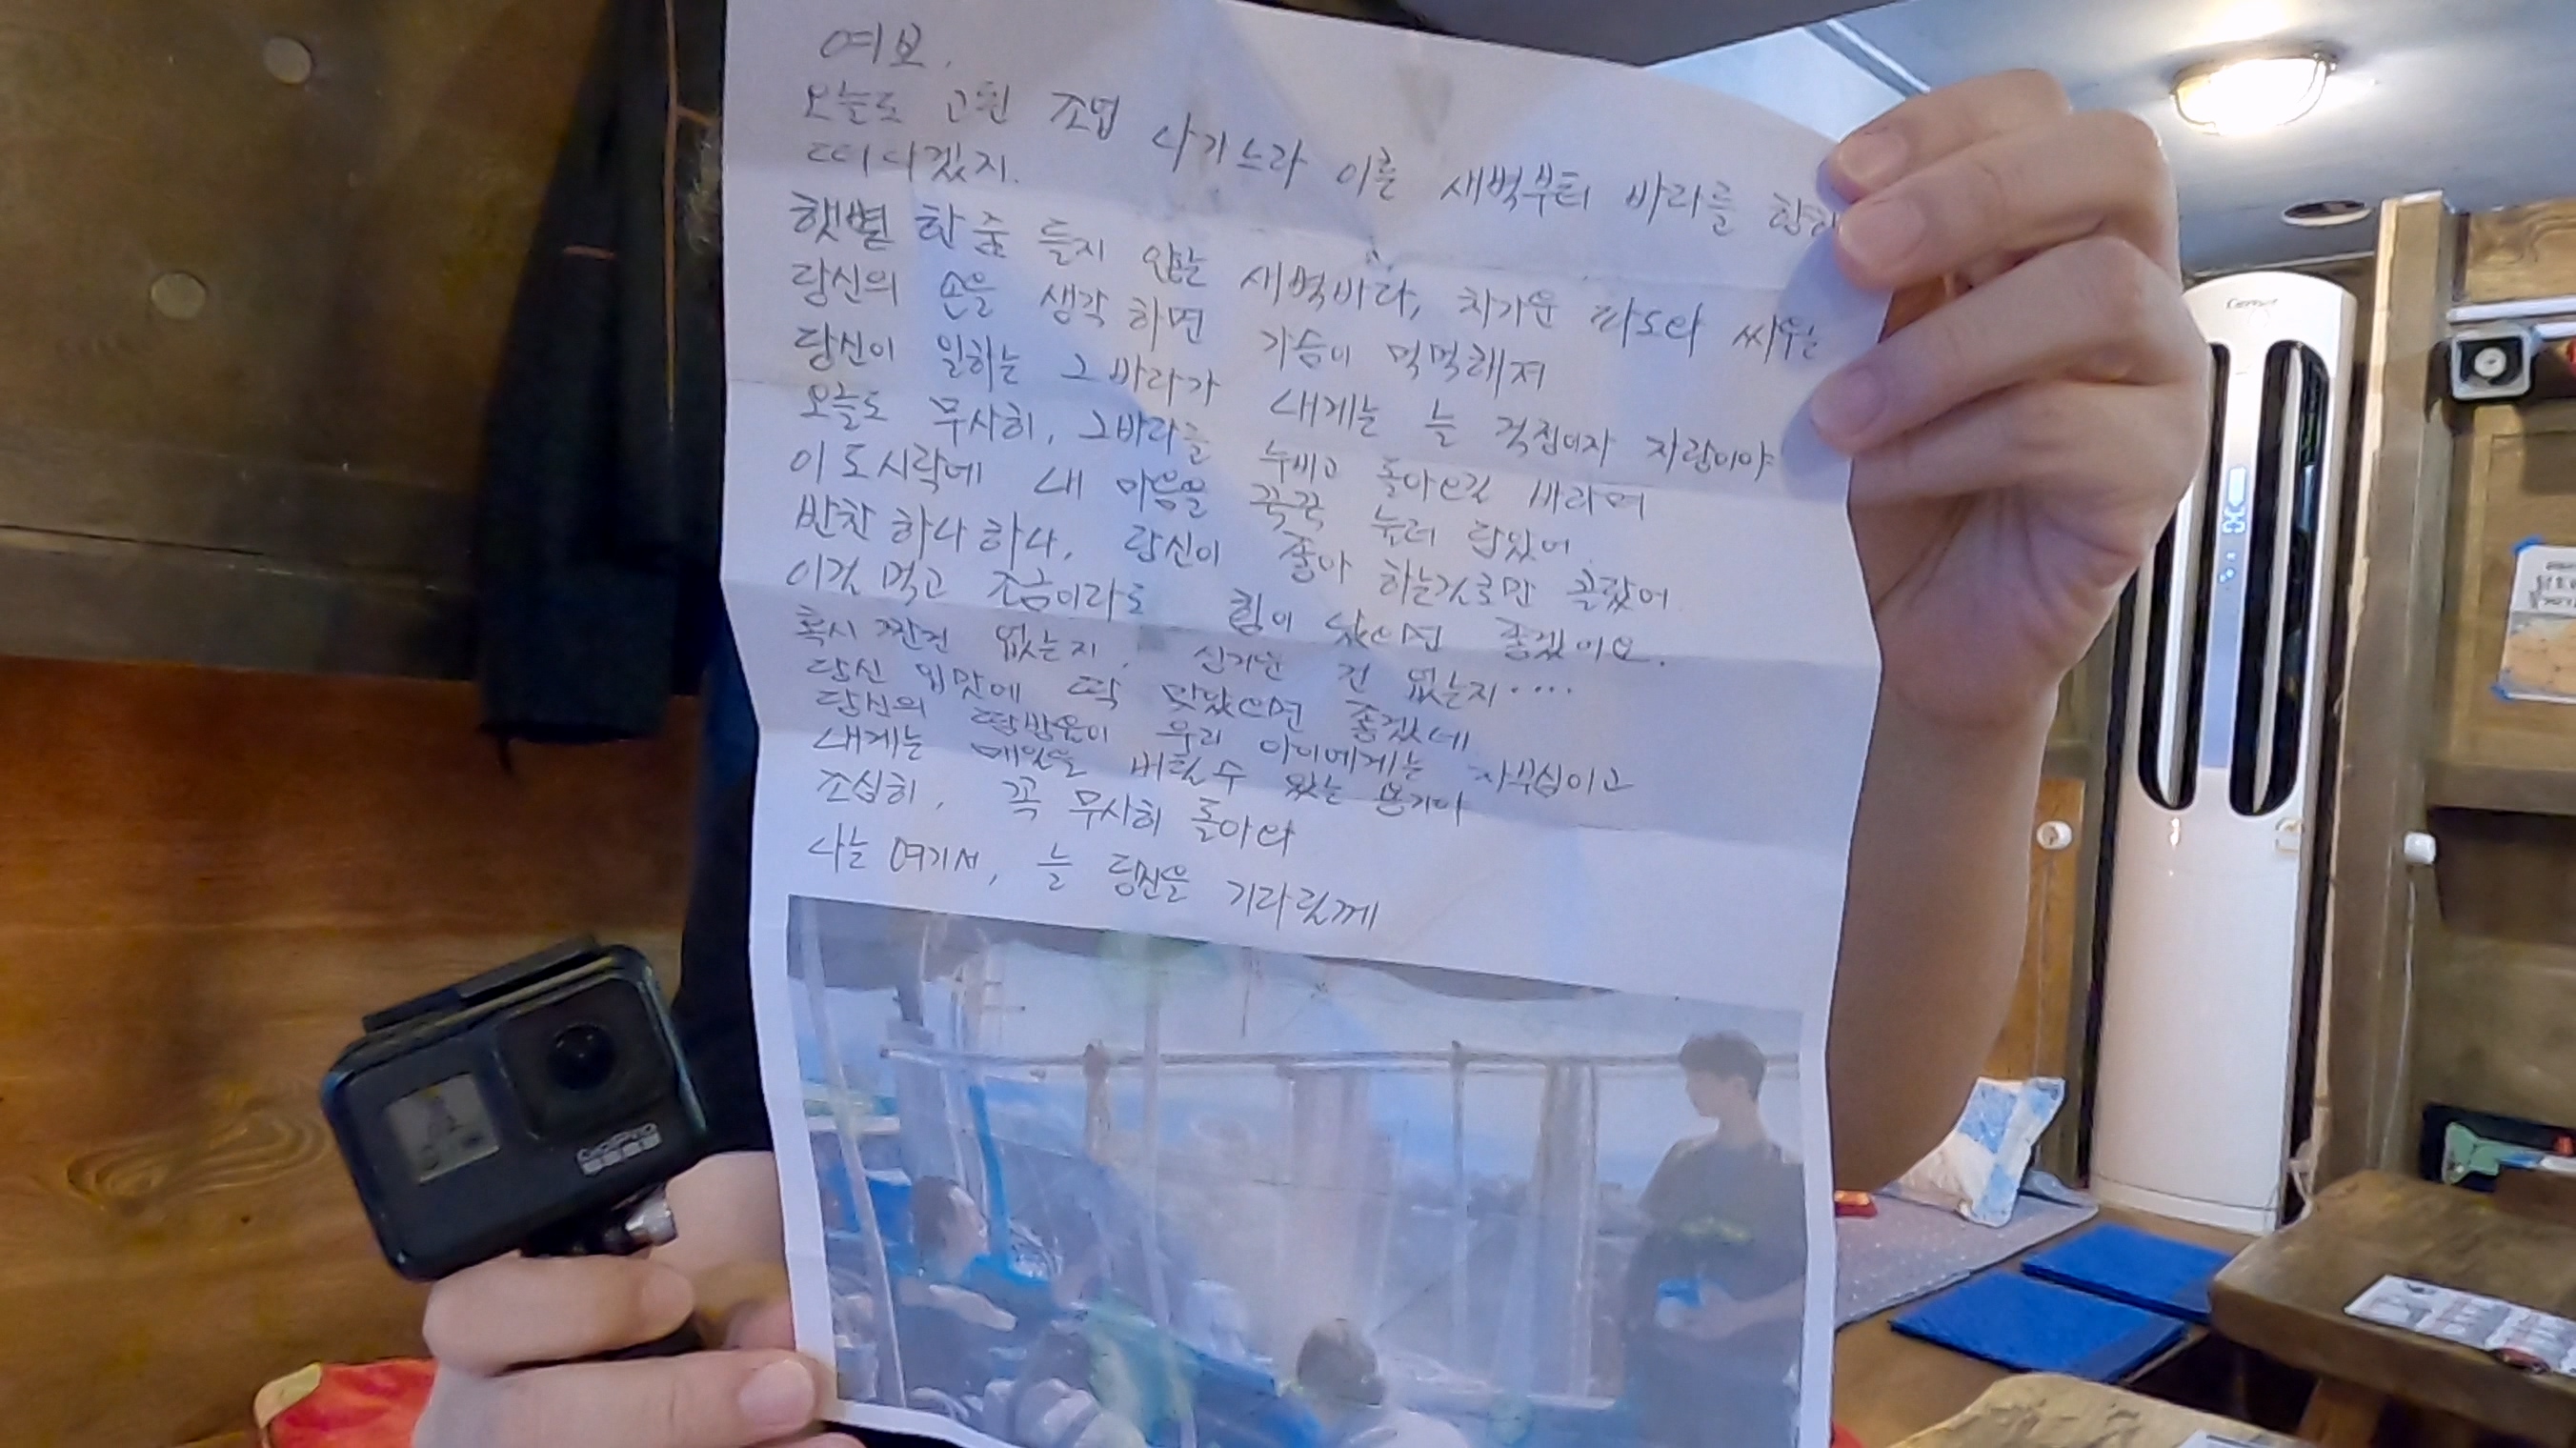 여보.
오늘도 고된 조업 나가느라 이른 새벽부터 바다를 향해
떠나겠지.
햇볕 한 줌 들지 않는 새벽바다, 차가운 파도와 싸울
당신의 손을 생각하면 가슴이 먹먹해져
당신이 일하는 그 바다가 내게는 늘 걱정이자 자랑이야
오늘도 무사히, 그바다를 누비고 돌아오길 바라며
이 도시락에 내 마음을 꾹꾹 눌러 담았어.
반찬 하나 하나, 당신이 좋아 하는것으로만 골랐어
이것 먹고 조금이라도 힘이 났으면 좋겠어요.
혹시 짠건 없는지, 싱거운 건 없는지....
당신 입맛에 딱 맞았으면 좋겠네
당신의 땀방울이 우리 아이에게는 자부심이고
내게는 매일을 버틸수 있는 용기야
조심히, 꼭 무사히 돌아와
나는 여기서, 늘 당신을 기다릴께
GoPro